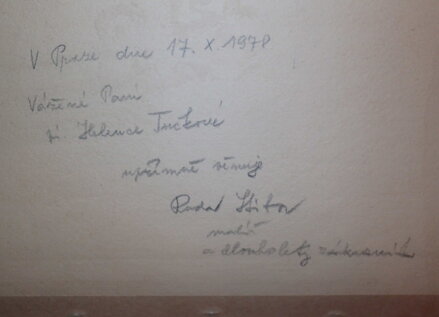 V Praze dne 17. X. 1978
Vážené Paní
Helence Tučkové
upřímně věnuje
malíř
a dlouholetý zákazník